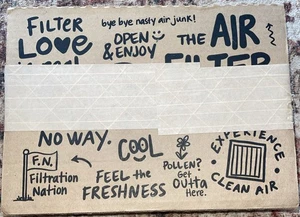 FILTER
LOVE
bye bye nasty air junk!
OPEN
& ENJOY
THE AIR
FILTER
NO WAY.
F.N.
Filtration
Nation
COOL
FEEL the
FRESHNESS
POLLEN?
Get
OUTTA
Here.
EXPERIENCE
CLEAN AIR